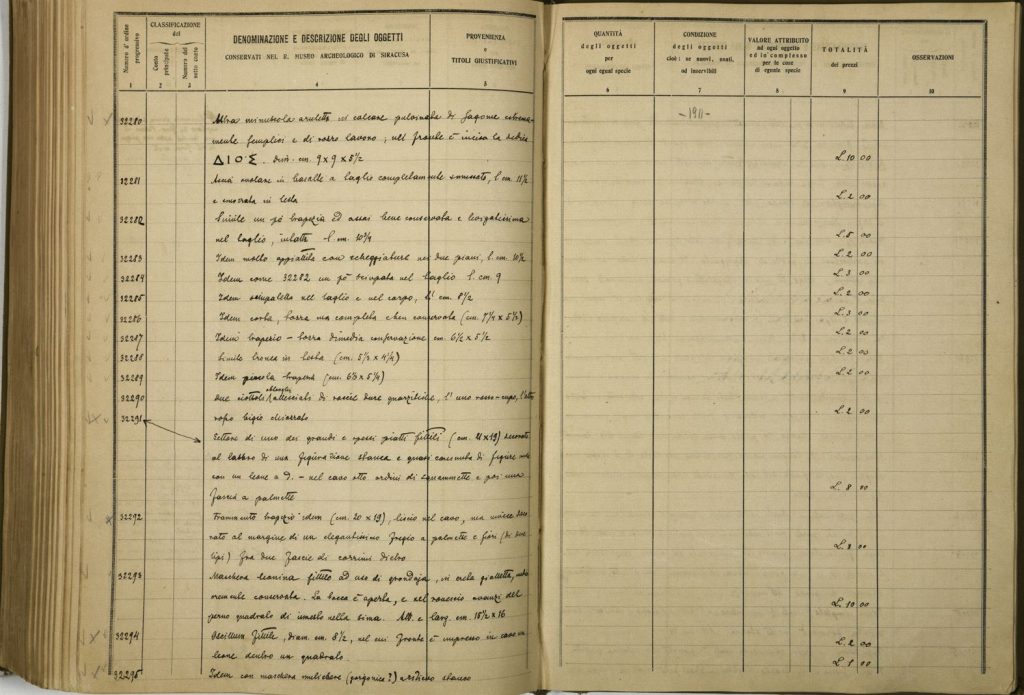 Numero d'ordine progressivo
CLASSIFICAZIONE
del
Conto principale
Numero del sotto conto
DENOMINAZIONE E DESCRIZIONE DEGLI OGGETTI
CONSERVATI NEL R. MUSEO ARCHEOLOGICO DI SIRACUSA
PROVENIENZA
o
TITOLI GIUSTIFICATIVI
1 2 3 4 5
32280 Altra minuscola aruletta in calcare di forme estrema-
mente semplici e di rozzo lavoro; nel fronte è incisa la
ΔΙΟΣ dim. cm. 9 x 9 x 5½
32281 Ascia in basalte a taglio completamente smussato, l. cm. 11½
e in testa
32282 Simile un pò trapezia ed assai bene conservata e
nel taglio, intatta l. cm. 10¾
32283 Idem molto appiattita con scheggiature nei due piani, l. cm. 10½
32284 Idem come 32282 un pò sciupata nel taglio l. cm. 9
32285 Idem nel taglio e nel corpo, cm. 8½
32286 Idem corta, tozza ma completa e ben conservata (cm. 7¼ x 5½)
32287 Idem trapezio - tozza di media conservazione cm. 6½ x 5½
32288 Simile tronca in testa (cm. 5⅓ x 4¼)
32289 Idem piccola trapezia (cm. 6⅓ x 5¼)
32290 Due ciottoli di roccie dure quarzitiche, l'uno rosso-cupo, l'altro
bigio chiazzato
32291 Settore di uno dei grandi e spessi piatti fittili (cm. 21 x 19) decorato
al labbro di una figurazione stanca e quasi consunta di figure
con un leone a d. - nel cavo otto ordini di squammette e poi una
fascia a palmette
32292 Frammento trapezio idem (cm. 20 x 19), liscio nel cavo, ma invece deco-
rato al margine di un elegantissimo fregio a palmette e fiori (di due
tipi) fra due fascie di
32293 Maschera leonina fittile ad uso di grondaja, in creta gialletta,
conservata. La bocca è aperta, e nel rovescio avanzi del
perno quadrato di innesto nella sima. Alt. e larg. cm. 18½ x 16
32294 Oscillum fittile, diam. cm. 8½, nel cui fronte è impresso in cavo un
leone dentro un quadrato
32295 Idem con maschera muliebre (gorgonica?) stanco
QUANTITÀ
degli oggetti
per
ogni egual specie
CONDIZIONE
degli oggetti
cioè: se nuovi, usati,
od inservibili
VALORE ATTRIBUITO
ad ogni oggetto
ed in complesso
per le cose
di eguale specie
TOTALITÀ
dei prezzi
OSSERVAZIONI
6 7 8 9 10
-1911-
L. 10 00
L. 2 00
L. 5 00
L. 2 00
L. 3 00
L. 2 00
L. 3 00
L. 2 00
L. 2 00
L. 2 00
L. 2 00
L. 8 00
L. 8 00
L. 10 00
L. 2 00
L. 1 00